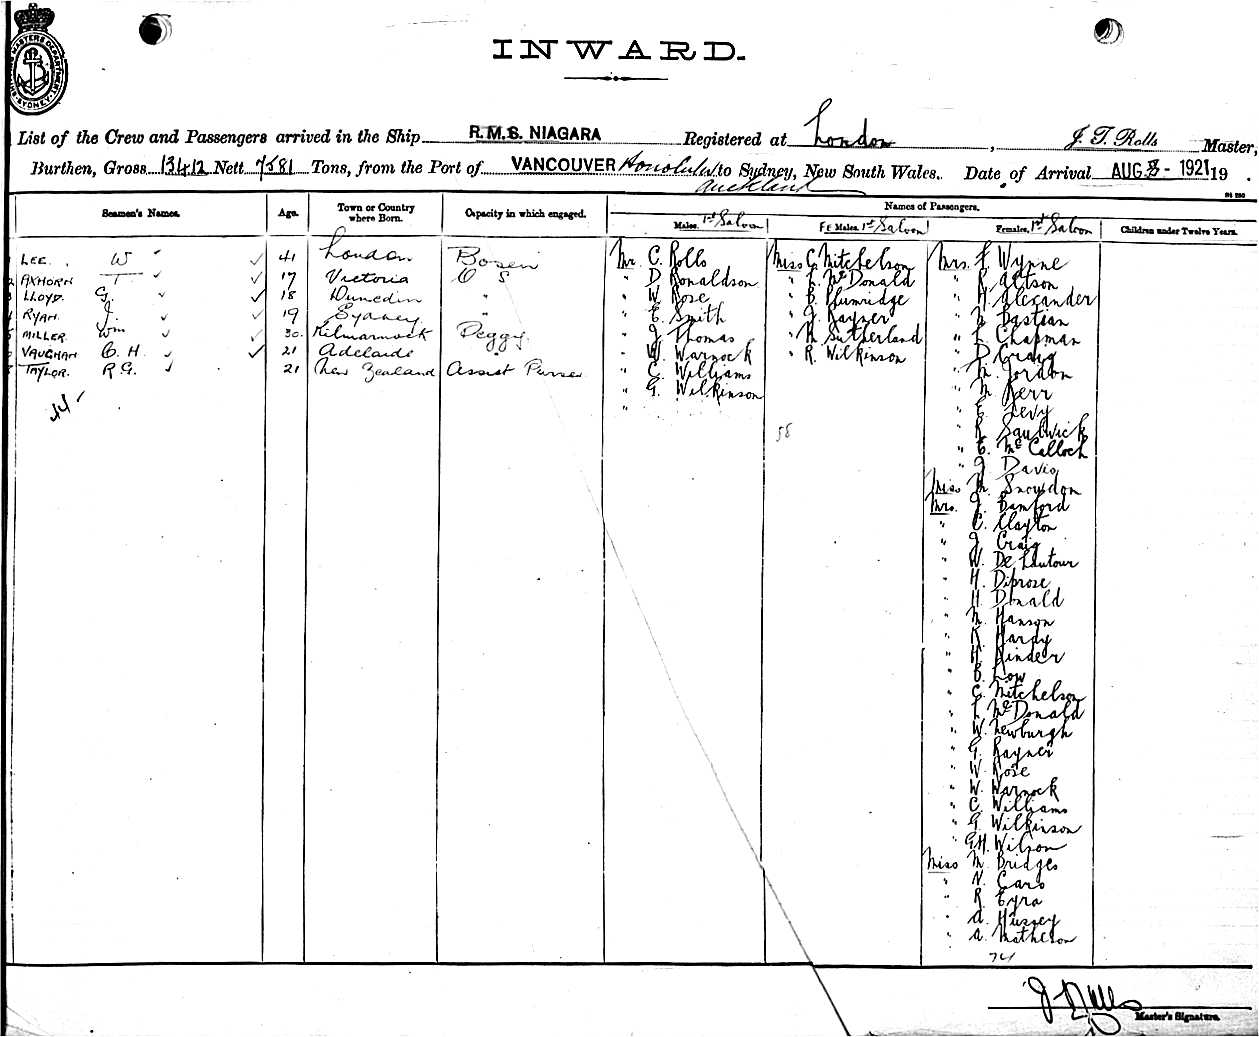 INWARD.
List of the Crew and Passengers arrived in the Ship R.M.S. NIAGARA Registered at London, J. T. Rolls Master,
Burthen, Gross 13412 Nett 7581 Tons, from the Port of VANCOUVER Honolulu to Sydney, New South Wales. Date of Arrival AUG 8 - 1921 19 .
Auckland
Seamen's Names.
Age.
Town or Country where Born.
Capacity in which engaged.
Names of Passengers.
Males. 1st Saloon
FE Males. 1st Saloon
Females. 1st Saloon
Children under Twelve Years.
LEE. W 41 London Bosen
AXHORN T 17 Victoria O S
LLOYD. G. 18 Dunedin "
RYAN. J. 19 Sydney "
MILLER. Wm 30. Kilmarnock Peggy.
VAUGHAN C. H. 21 Adelaide "
TAYLOR. R G. 21 New Zealand Assist Purser
44
Mr. C. Rolls
" D. Ronaldson
" W. Rose
" E. Smith
" J. Thomas
" W. Warnock
" C. Williams
" G. Wilkinson
"
Miss C. Mitchelson
" L. McDonald
" B. Plumridge
" J. Rayner
" M. Sutherland
" R. Wilkinson
58
Mrs. F. Wynne
" R. Altson
" H. Alexander
" Bastian
" L. Chapman
" D. Craig
" M. Jordan
" M. Kerr
" E. Levy
" R. Sandwick
" E. McCalloch
" J. Davis
Miss M. Snowdon
Mrs. J. Bamford
" C. Clayton
" J. Craig
" W. De Lautour
" H. Diprose
" H. Donald
" M. Hanson
" K. Hardy
" H. Kinder
" E. Low
" C. Mitchelson
" L. McDonald
" W. Newburgh
" G. Rayner
" W. Rose
" W. Warnock
" C. Williams
" G. Wilkinson
" G.H. Wilson
Miss M. Bridges
" N. Caro
" R. Eyra
" A. Hussey
" A. Matheson
74
J Rolls
Master's Signature.